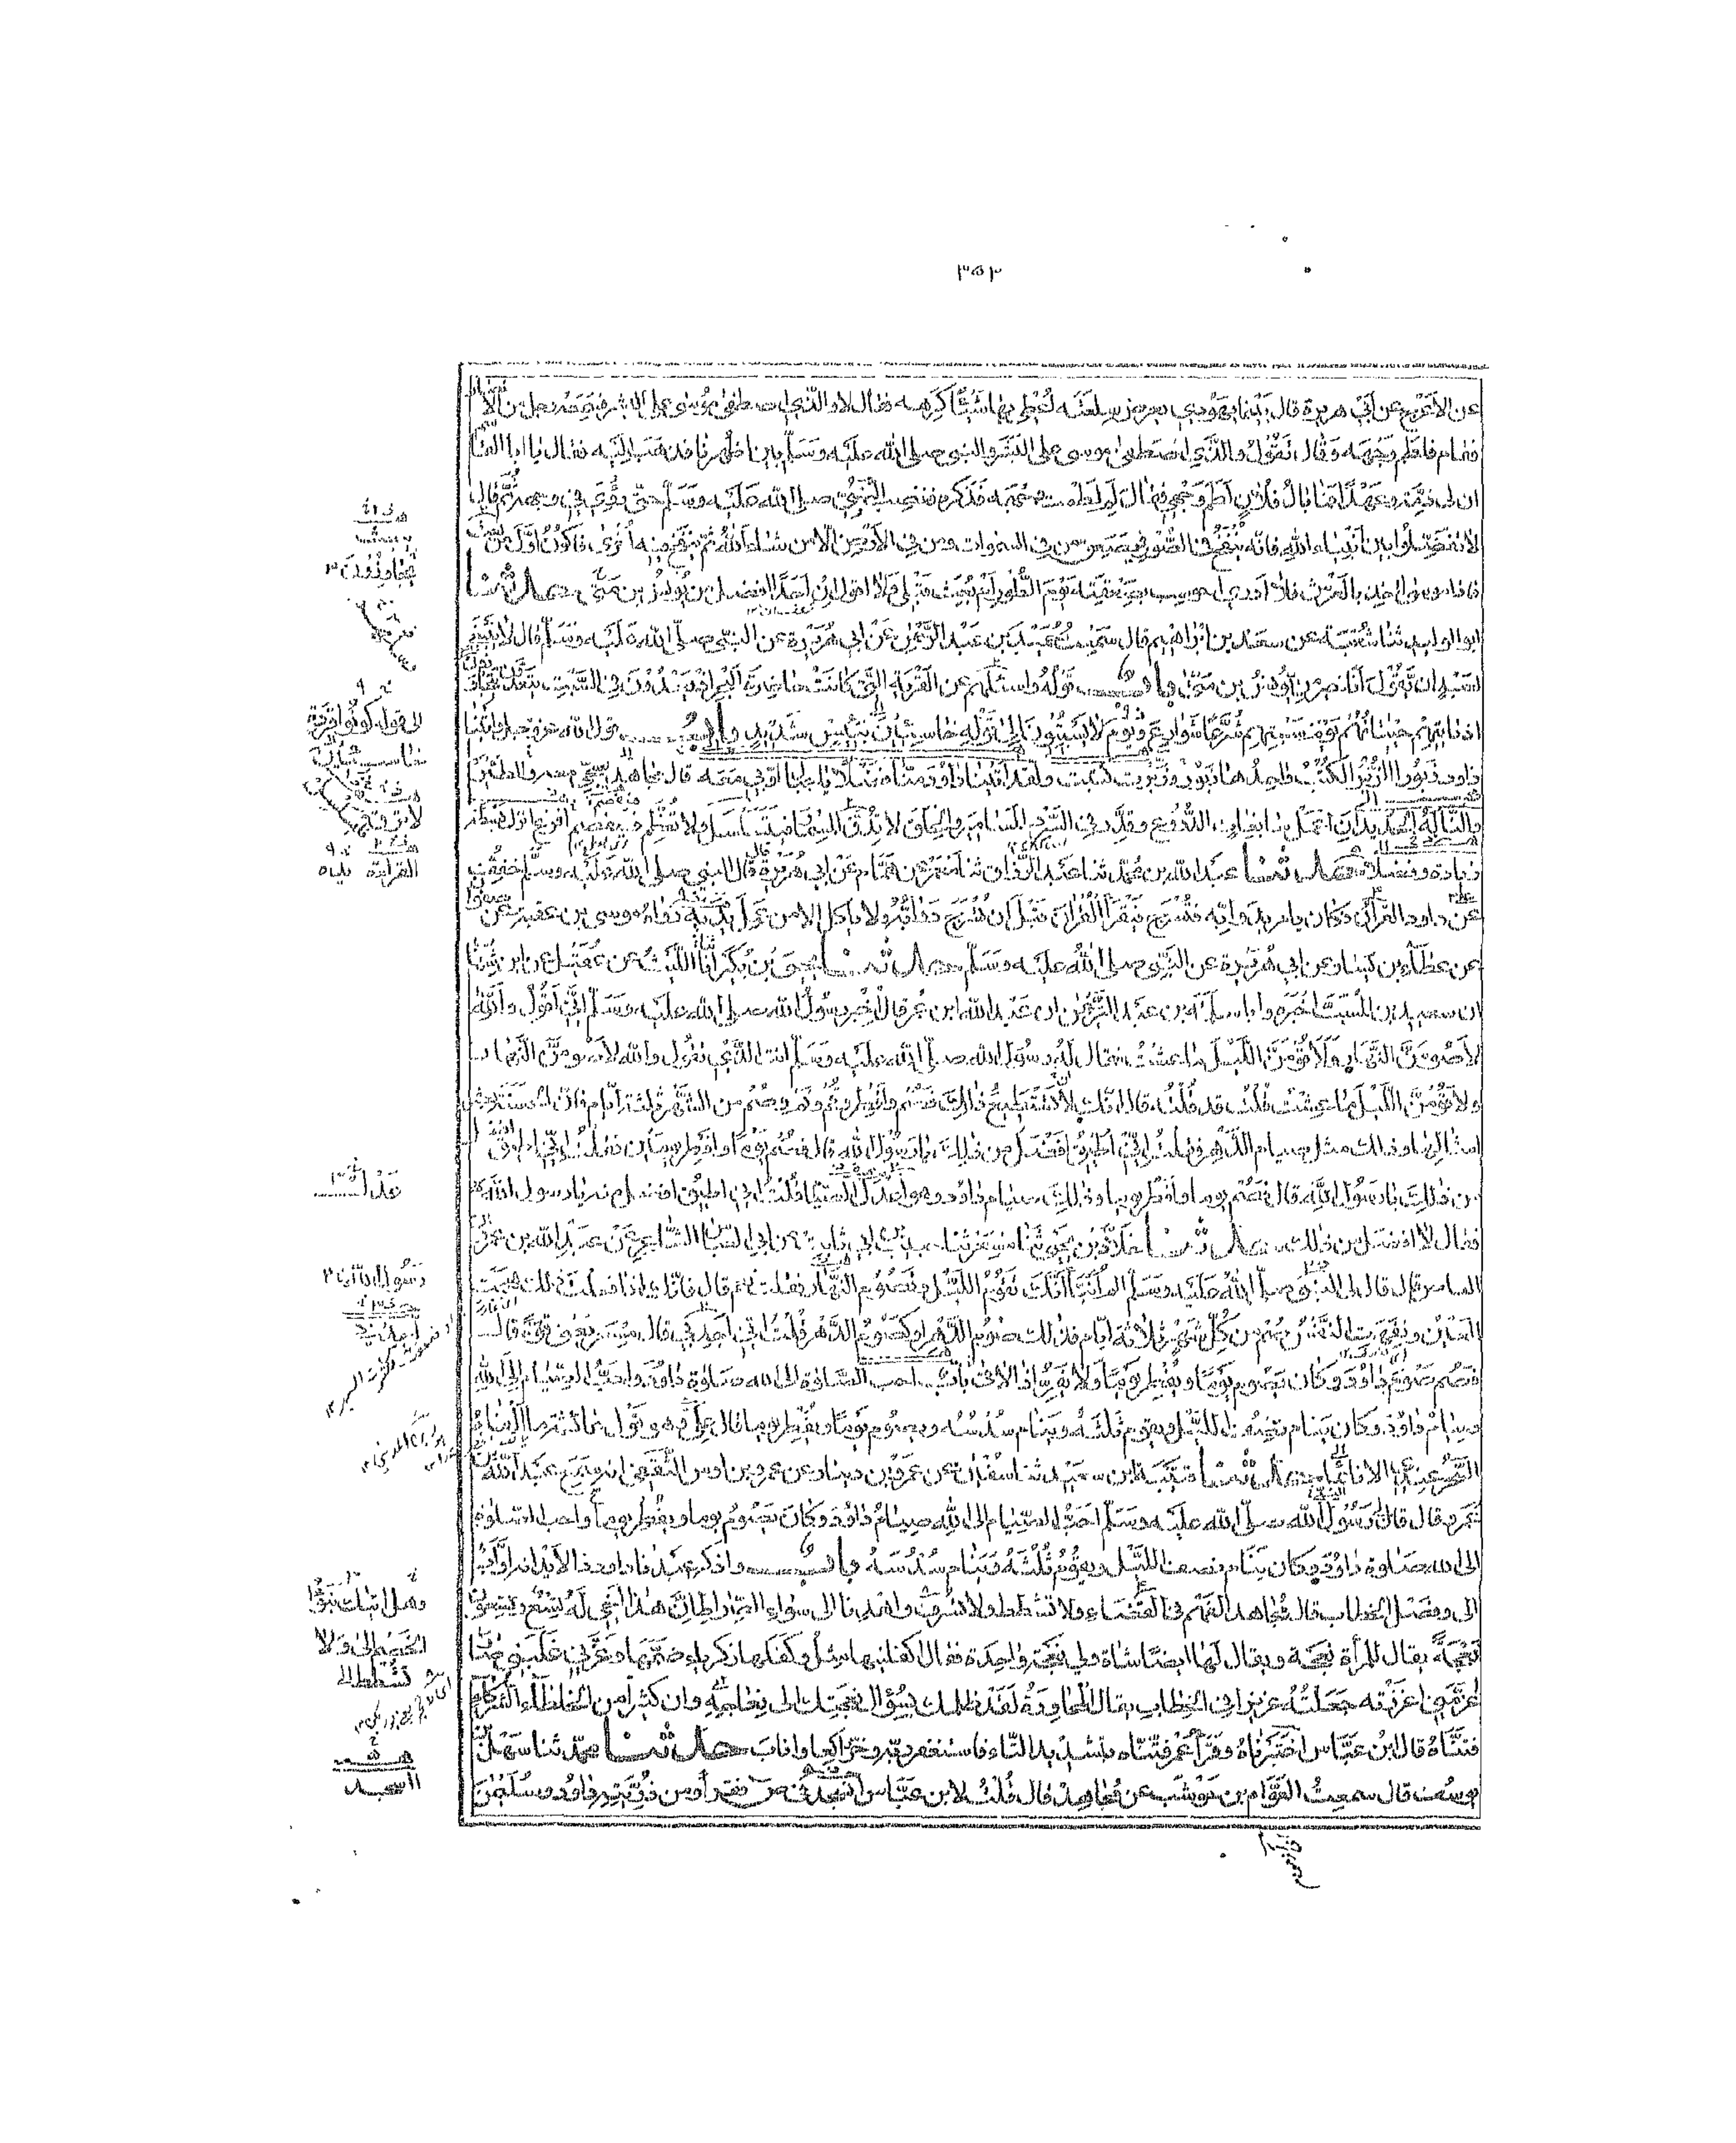 ٣٥٣
عن الاعرج عن ابي هريرة قال بينما يهودي يعرض سلعته اعطي بها شيئا كرهه فقال لا والذي اصطفى موسى على البشر فسمعه رجل من الانصار
فقام فلطم وجهه وقال تقول والذي اصطفى موسى على البشر والنبي صلى الله عليه وسلم بين اظهرنا فذهب اليه فقال يا ابا القاسم
ان لي ذمة وعهدا فما بال فلان لطم وجهي فقال لم لطمت وجهه فذكره فغضب النبي صلى الله عليه وسلم حتى رؤي في وجهه ثم قال
لا تفضلوا بين انبياء الله فانه ينفخ في الصور فيصعق من في السموات ومن في الارض الا من شاء الله ثم ينفخ فيه اخرى فاكون اول من بعث
فاذا موسى اخذ بالعرش فلا ادري احوسب بصعقته يوم الطور ام بعث قبلي ولا اقول ان احدا افضل من يونس بن متى حدثنا
ابو الوليد ثنا شعبة عن سعد بن ابراهيم قال سمعت حميد بن عبد الرحمن عن ابي هريرة عن النبي صلى الله عليه وسلم قال لا ينبغي
لعبد ان يقول انا خير من يونس بن متى باب قوله واسئلهم عن القرية التي كانت حاضرة البحر اذ يعدون في السبت يتعدون يتجاوزون
اذ تاتيهم حيتانهم يوم سبتهم شرعا شوارع ويوم لا يسبتون الى قوله خاسئين بئيس شديد باب قول الله عز وجل واتينا
داود زبورا الزبر الكتب واحدها زبور زبرت كتبت ولقد اتينا داود منا فضلا يا جبال اوبي معه قال مجاهد سبحي معه والطير
والنا له الحديد ان اعمل سابغات الدروع وقدر في السرد المسامير والحلق لا تدق المسمار فيتسلسل ولا تعظم فيفصم افرغ انزل بسطة
زيادة وفضلا حدثنا عبد الله بن محمد ثنا عبد الرزاق ثنا معمر عن همام عن ابي هريرة قال النبي صلى الله عليه وسلم خفف
عن داود القران وكان يامر بدوابه فتسرج فيقرا القران قبل ان تسرج دوابه ولا ياكل الا من عمل يديه رواه موسى بن عقبة عن صفوان
عن عطاء بن يسار عن ابي هريرة عن النبي صلى الله عليه وسلم حدثنا يحيى بن بكير انا الليث عن عقيل عن ابن شهاب
ان سعيد بن المسيب اخبره وابا سلمة بن عبد الرحمن ان عبد الله ابن عمرو قال اخبر رسول الله صلى الله عليه وسلم اني اقول والله
لاصومن النهار ولاقومن الليل ما عشت فقال له رسول الله صلى الله عليه وسلم انت الذي تقول والله لاصومن النهار
ولاقومن الليل ما عشت قلت قد قلته قال انك لا تستطيع ذلك فصم وافطر وقم ونم وصم من الشهر ثلثة ايام فان الحسنة بعشر
امثالها وذلك مثل صيام الدهر فقلت اني اطيق افضل من ذلك يا رسول الله قال فصم يوما وافطر يومين فقلت اني اطيق افضل
من ذلك يا رسول الله قال فصم يوما وافطر يوما وذلك صيام داود وهو اعدل الصيام قلت اني اطيق افضل منه يا رسول الله
فقال لا افضل من ذلك حدثنا خلاد بن يحيى ثنا مسعر ثنا حبيب بن ابي ثابت عن ابي العباس الشاعر عن عبد الله بن عمرو بن
العاص قال قال لي النبي صلى الله عليه وسلم الم انبا انك تقوم الليل وتصوم النهار فقلت نعم قال فانك اذا فعلت ذلك هجمت
العين ونفهت النفس صم من كل شهر ثلاثة ايام فذلك صوم الدهر او كصوم الدهر قلت اني اجد بي قال مسعر يعني قوة قال
فصم صوم داود وكان يصوم يوما ويفطر يوما ولا يفر اذا لاقى باب احب الصلوة الى الله صلوة داود واحب الصيام الى الله
صيام داود وكان ينام نصف الليل ويقوم ثلثه وينام سدسه ويصوم يوما ويفطر يوما قال علي وهو قول عائشة ما الفاه
السحر عندي الا نائما حدثنا قتيبة بن سعيد ثنا سفيان عن عمرو بن دينار عن عمرو بن اوس الثقفي انه سمع عبد الله بن
عمرو قال قال رسول الله صلى الله عليه وسلم احب الصيام الى الله صيام داود وكان يصوم يوما ويفطر يوما واحب الصلوة
الى الله صلوة داود وكان ينام نصف الليل ويقوم ثلثه وينام سدسه باب واذكر عبدنا داود ذا الايد انه اواب
الى وفصل الخطاب قال مجاهد الفهم في القضاء ولا تشطط ولا تسرف واهدنا الى سواء الصراط ان هذا اخي له تسع وتسعون
نعجة يقال للمرأة نعجة ويقال لها ايضا شاة ولي نعجة واحدة فقال اكفلنيها مثل وكفلها زكرياء ضمها وعزني غلبني صار
اعز مني اعززته جعلته عزيزا في الخطاب يقال المحاورة لقد ظلمك بسؤال نعجتك الى نعاجه وان كثيرا من الخلطاء الشركاء
فتناه قال ابن عباس اختبرناه وقرأ عمر فتناه بتشديد التاء فاستغفر ربه وخر راكعا واناب حدثنا محمد ثنا سهل بن
يوسف قال سمعت العوام بن حوشب عن مجاهد قال قلت لابن عباس انسجد في ص فقرأ ومن ذريته داود وسليمن
يتجاوزون
الى قوله كونوا قردة
خاسئين
القراءة
عدل
رسول الله
وهل اتاك نبؤا
الخصم الى ولا
تشطط الى
ااسجد